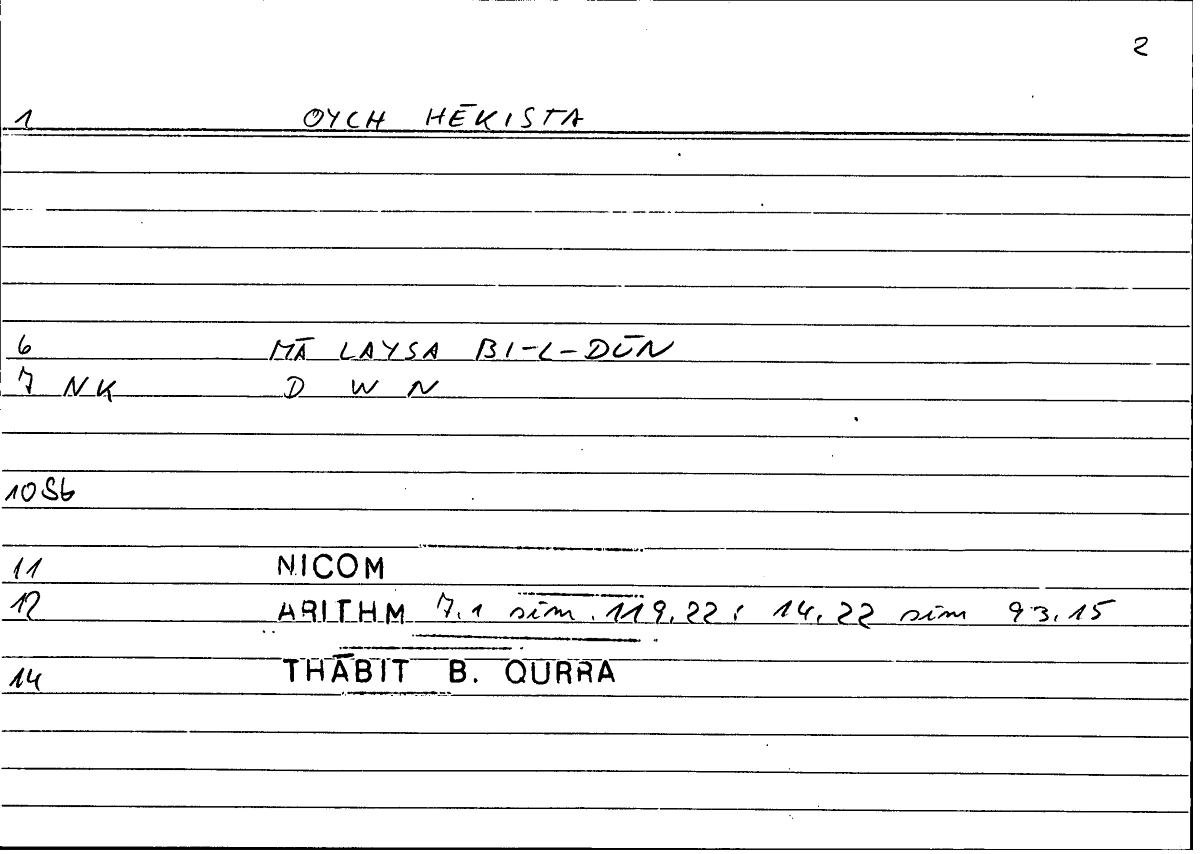 2
1 OYCH HĒKISTA
6 MĀ LAYSA BI-L-DŪN
7 NK D W N
10 Sb
11 NICOM
12 ARITHM 7.1 sim. 119,22; 14,22 sim 93.15
14 THĀBIT B. QURRA